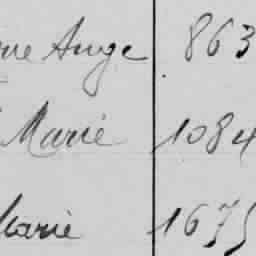 Ange 863
Marie 1084
Marie 1675